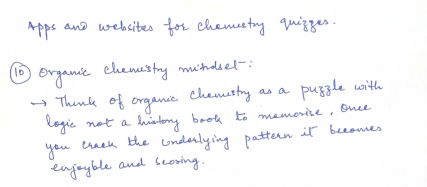 Apps and websites for chemistry quizzes.
(10) Organic chemistry mindset:
→ Think of organic chemistry as a puzzle with
logic not a history book to memorise, Once
you crack the underlying pattern it becomes
enjoyble and scoring.